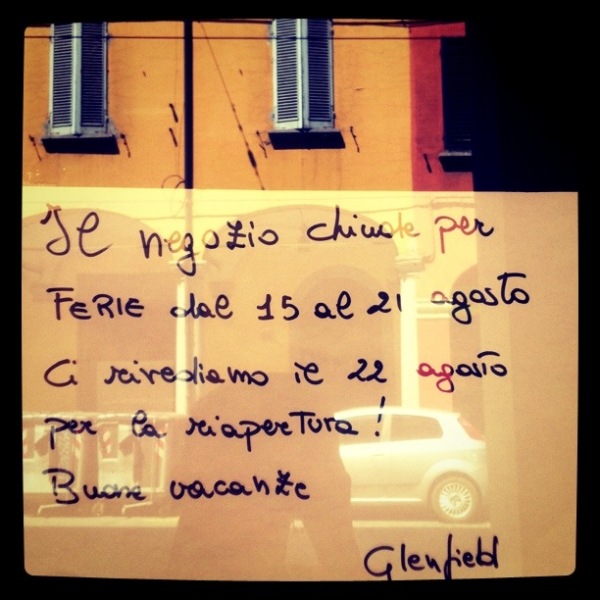 Il negozio chiude per
FERIE dal 15 al 21 agosto
Ci rivediamo il 22 agosto
per la riapertura!
Buone vacanze
Glenfield